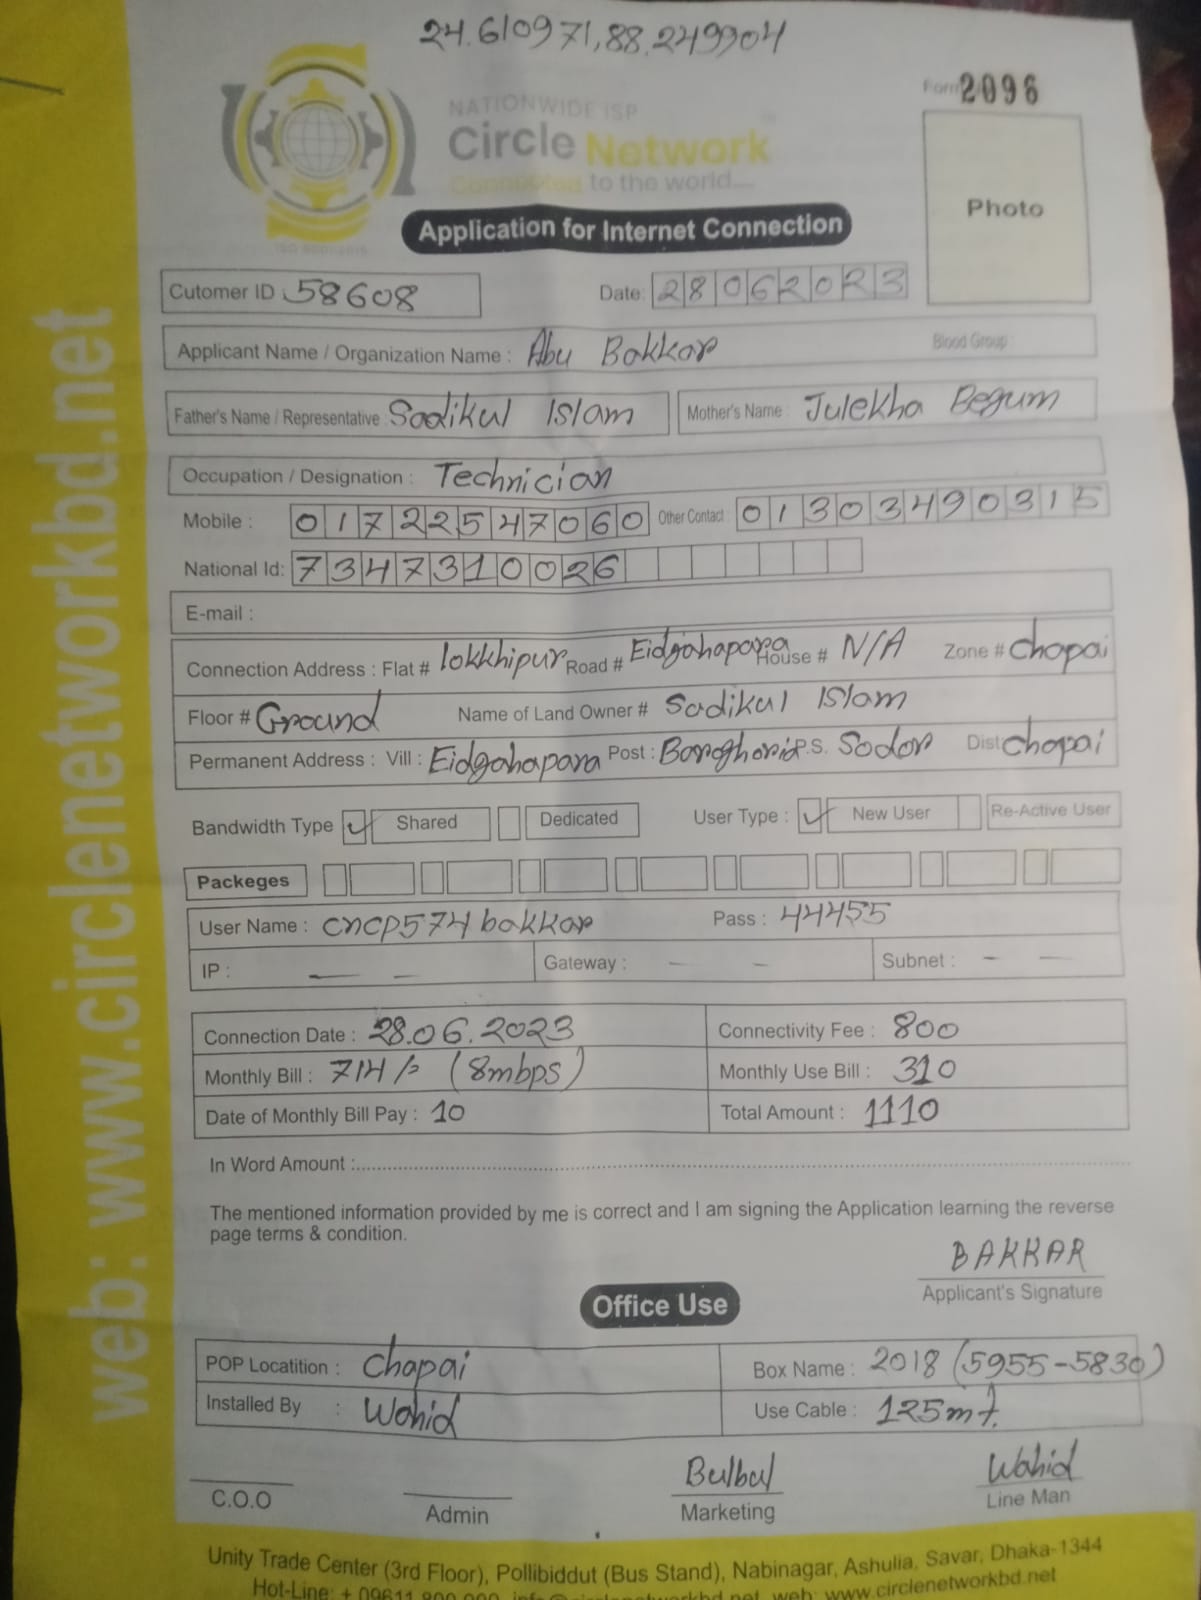 24.610971,88.249904
Form 2096
NATIONWIDE ISP
Circle Network
Connected to the world....
Photo
Application for Internet Connection
Cutomer ID 58608
Date: 28062023
Applicant Name / Organization Name : Abu Bakkar
Blood Group :
Father's Name / Representative : Sadikul Islam
Mother's Name : Julekha Begum
Occupation / Designation : Technician
Mobile : 01722547060 Other Contact 01303490315
National Id: 7347310026
E-mail :
Connection Address : Flat # lokkhipur Road # Eidgahapara House # N/A Zone # Chapai
Floor # Ground Name of Land Owner # Sadikul Islam
Permanent Address : Vill : Eidgahapara Post : Barghoria P.S. Sodor Dist Chapai
Bandwidth Type Shared Dedicated User Type : New User Re-Active User
Packeges
User Name : cncp574bakkar Pass : 44455
IP : — — Gateway : — — Subnet : — —
Connection Date : 28.06.2023 Connectivity Fee : 800
Monthly Bill : 714/= (8mbps) Monthly Use Bill : 310
Date of Monthly Bill Pay : 10 Total Amount : 1110
In Word Amount :
The mentioned information provided by me is correct and I am signing the Application learning the reverse
page terms & condition.
BAKKAR
Applicant's Signature
Office Use
POP Locatition : Chapai Box Name : 2018 (5955-5830)
Installed By : Wahid Use Cable : 125mt.
Bulbul Wahid
C.O.O Admin Marketing Line Man
Unity Trade Center (3rd Floor), Pollibiddut (Bus Stand), Nabinagar, Ashulia, Savar, Dhaka-1344
Hot-Line: + 09611 800 900, web: www.circlenetworkbd.net
web: www.circlenetworkbd.net